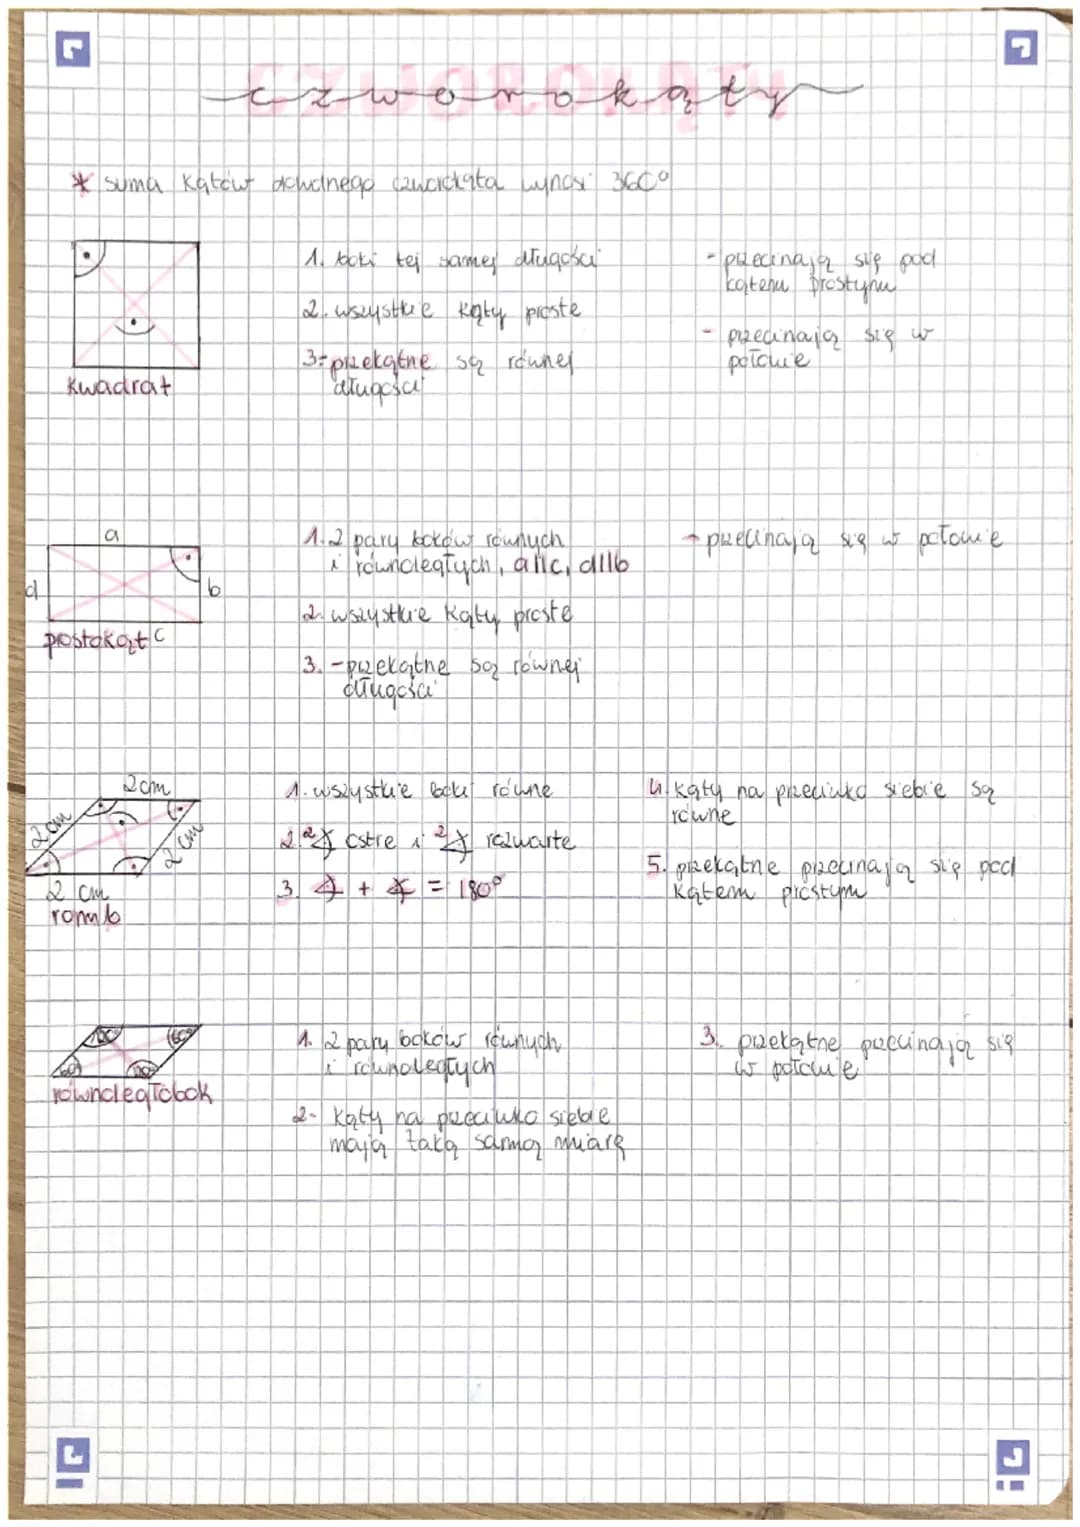 CZWOROKĄTY
czworokąty
* suma kątów dowolnego czworokąta wynosi 360°
kwadrat
1. boki tej samej długości
2. wszystkie kąty proste
3. - przekątne są równej
długości
- przecinają się pod
kątem prostym
- przecinają się w
połowie
a
d
b
c
prostokąt
1. 2 pary boków równych
i równoległych, a||c, d||b
2. wszystkie kąty proste
3. - przekątne są równej
długości
- przecinają się w połowie
2cm
2cm
2cm
2 cm
romb
1. wszystkie boki równe
2. 2∡ ostre i 2∡ rozwarte
3. ∡ + ∡ = 180°
4. kąty na przeciwko siebie są
równe
5. przekątne przecinają się pod
kątem prostym
60°
równoległobok
1. 2 pary boków równych
i równoległych
2. kąty na przeciwko siebie
mają taką samą miarę
3. przekątne przecinają się
w połowie